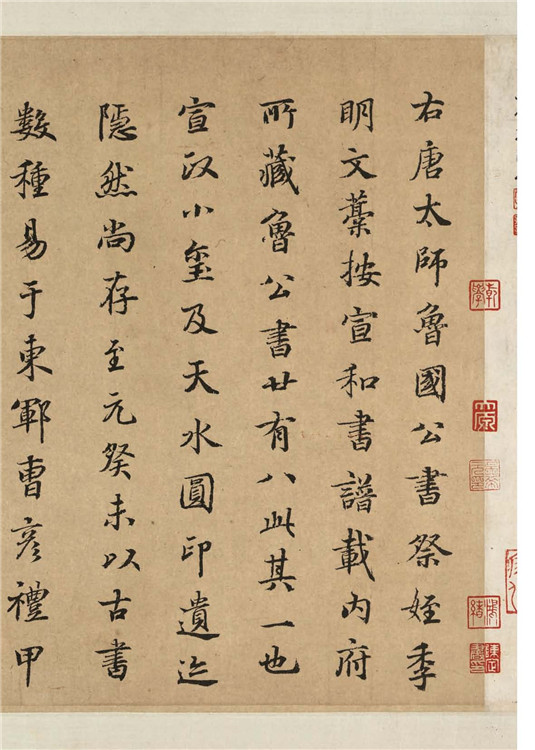 右唐太師魯國公書祭姪季
明文藁按宣和書譜載內府
所藏魯公書廿有八此其一也
宣政小璽及天水圓印遺迹
隱然尚存至元癸未以古書
數種易于東鄆曹彥禮甲